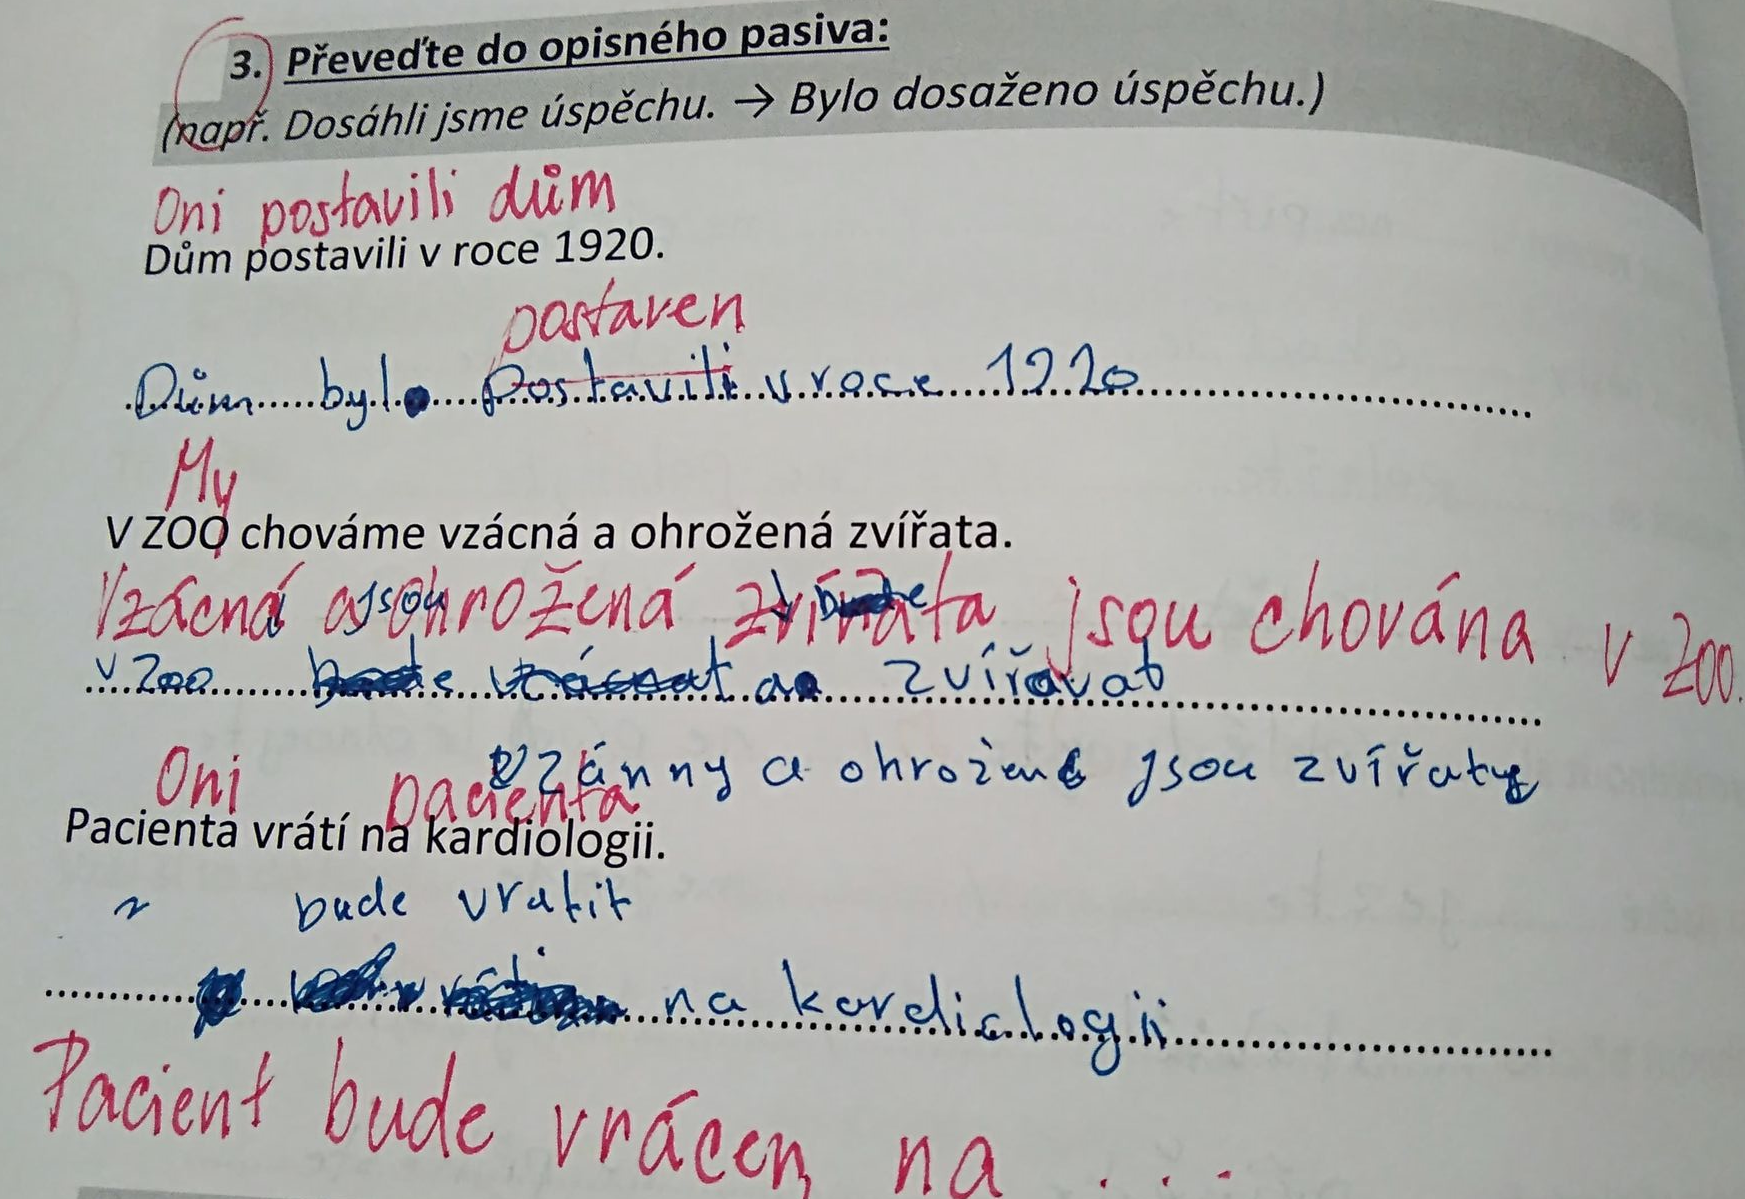 3. Převeďte do opisného pasiva:
(např. Dosáhli jsme úspěchu. → Bylo dosaženo úspěchu.)
Oni postavili dům
Dům postavili v roce 1920.
postaven
Dům byl postavili v roce 1920
My
V ZOO chováme vzácná a ohrožená zvířata.
Vzácná a ohrožená zvířata jsou chována v ZOO.
jsou
v Zoo zvířavat
Oni pacienta
vzánny a ohrožené jsou zvířaty
Pacienta vrátí na kardiologii.
bude vratit
na kordialogii
Pacient bude vrácen na ...